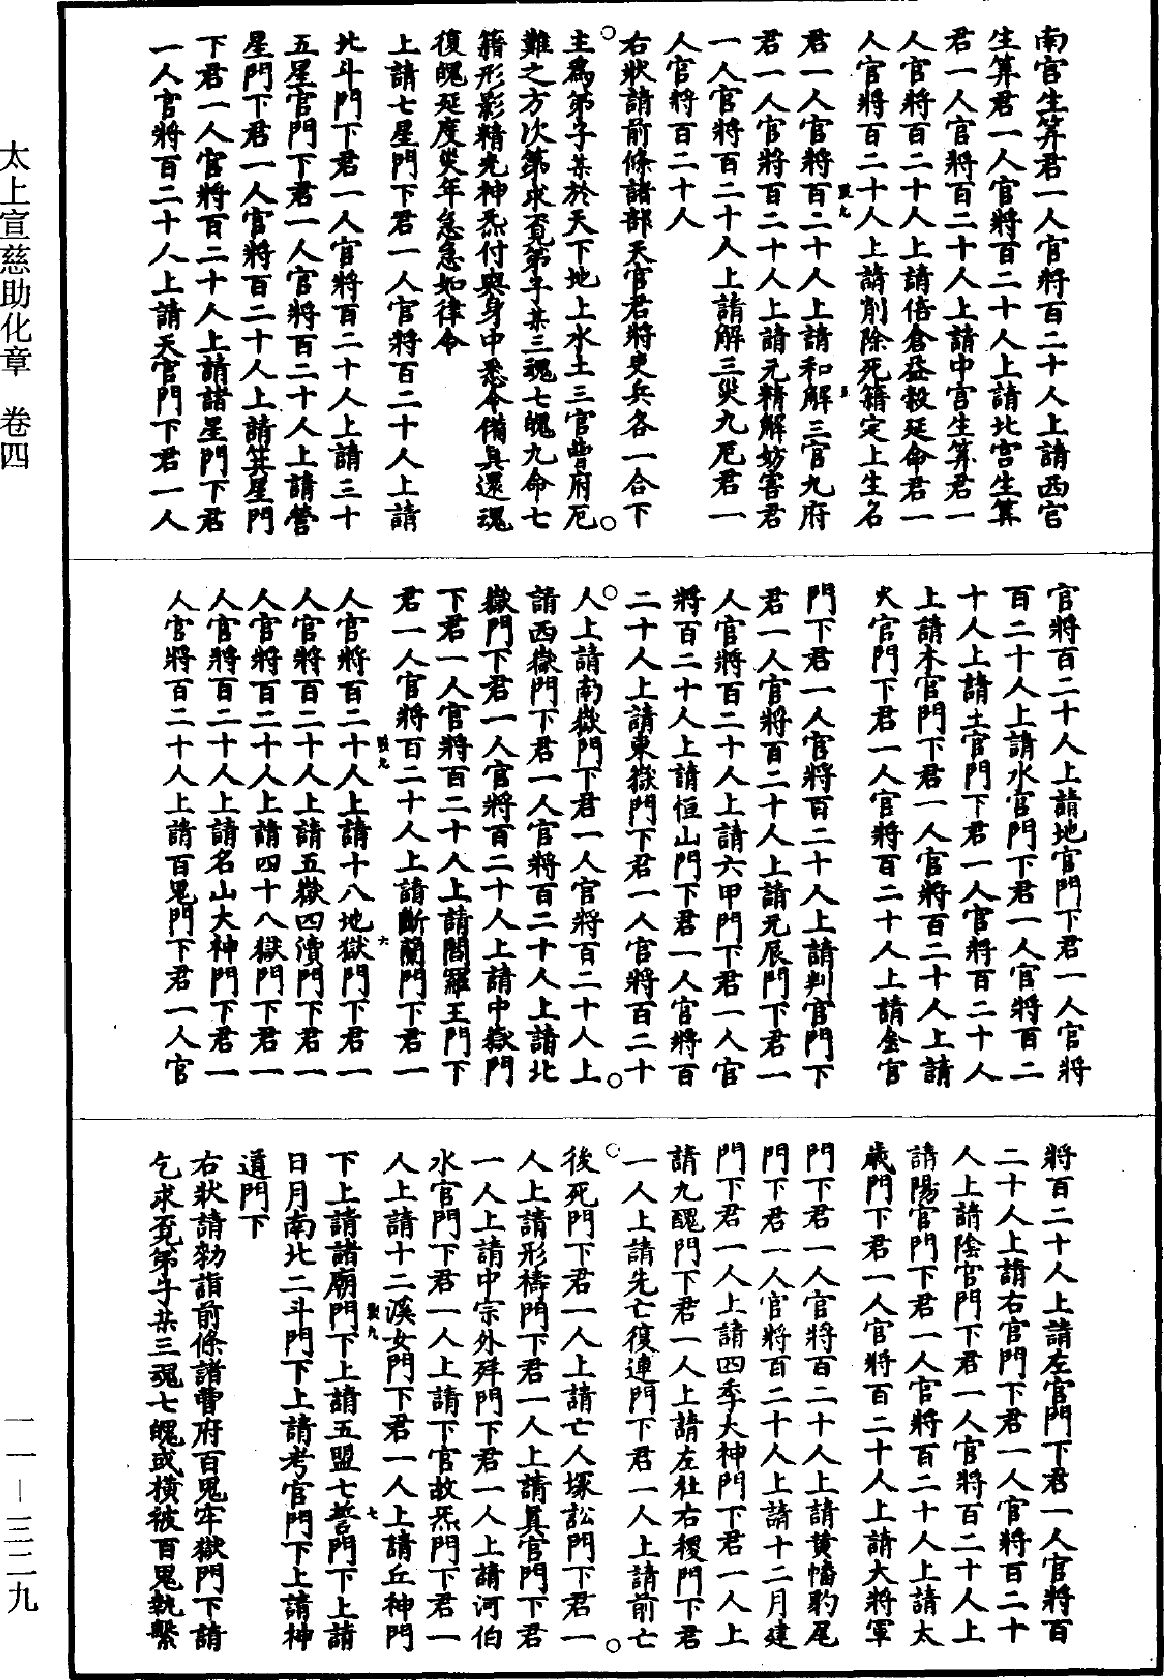 南宮生筭君一人官將百二十人上請西宮
生筭君一人官將百二十人上請北宮生筭
君一人官將百二十人上請中宮生筭君一
人官將百二十人上請倍倉益穀延命君一
人官將百二十人上請削除死籍定上生名
君一人官將百二十人上請和解三官九府
君一人官將百二十人上請元精解妨害君
一人官將百二十人上請解三災九厄君一
人官將百二十人
右狀請前條諸部天官君將吏兵各一合下
主爲弟子某於天下地上水土三官曹府厄
難之方次第求覔弟子某三魂七魄九命七
籍形影精光神炁付與身中悉令備具還魂
復魄延度災年急急如律令
上請七星門下君一人官將百二十人上請
北斗門下君一人官將百二十人上請三十
五星官門下君一人官將百二十人上請營
星門下君一人官將百二十人上請箕星門
下君一人官將百二十人上請諸星門下君
一人官將百二十人上請天官門下君一人
官將百二十人上請地官門下君一人官將
百二十人上請水官門下君一人官將百二
十人上請土官門下君一人官將百二十人
上請木官門下君一人官將百二十人上請
火官門下君一人官將百二十人上請金官
門下君一人官將百二十人上請判官門下
君一人官將百二十人上請元辰門下君一
人官將百二十人上請六甲門下君一人官
將百二十人上請恒山門下君一人官將百
二十人上請東嶽門下君一人官將百二十
人上請南嶽門下君一人官將百二十人上
請西嶽門下君一人官將百二十人上請北
嶽門下君一人官將百二十人上請中嶽門
下君一人官將百二十人上請閻羅王門下
君一人官將百二十人上請斷蘭門下君一
人官將百二十人上請十八地獄門下君一
人官將百二十人上請五嶽四瀆門下君一
人官將百二十人上請四十八獄門下君一
人官將百二十人上請名山大神門下君一
人官將百二十人上請百鬼門下君一人官
將百二十人上請左官門下君一人官將百
二十人上請右官門下君一人官將百二十
人上請陰官門下君一人官將百二十人上
請陽官門下君一人官將百二十人上請太
歲門下君一人官將百二十人上請大將軍
門下君一人官將百二十人上請黄幡豹尾
門下君一人官將百二十人上請十二月建
門下君一人上請四季大神門下君一人上
請九醜門下君一人上請左社右稷門下君
一人上請先亡復連門下君一人上請前亡
後死門下君一人上請亡人塚訟門下君一
人上請形禱門下君一人上請眞官門下君
一人上請中宗外殍門下君一人上請河伯
水官門下君一人上請下官故炁門下君一
人上請十二溪女門下君一人上請丘神門
下上請諸廟門下上請五盟七誓門下上請
日月南北二斗門下上請考官門下上請神
道門下
右狀請勑詣前條諸曹府百鬼牢獄門下請
乞求覔弟子某三魂七魄或橫被百鬼執繫
太上宣慈助化章 卷四
一一—三二九